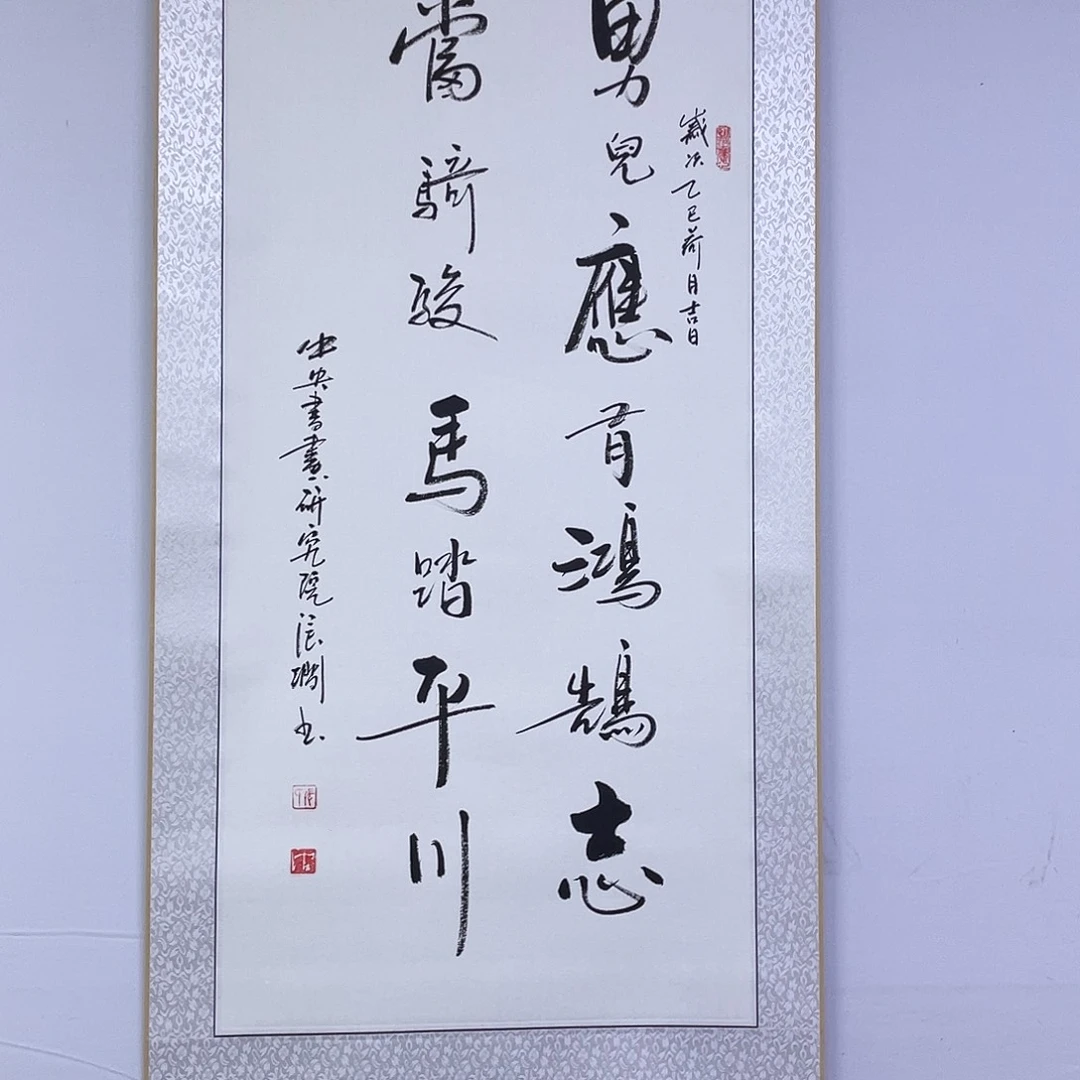 歲次乙巳荷月吉日
男兒應有鴻鵠志
當騎駿馬踏平川
中央書畫研究院張潤书